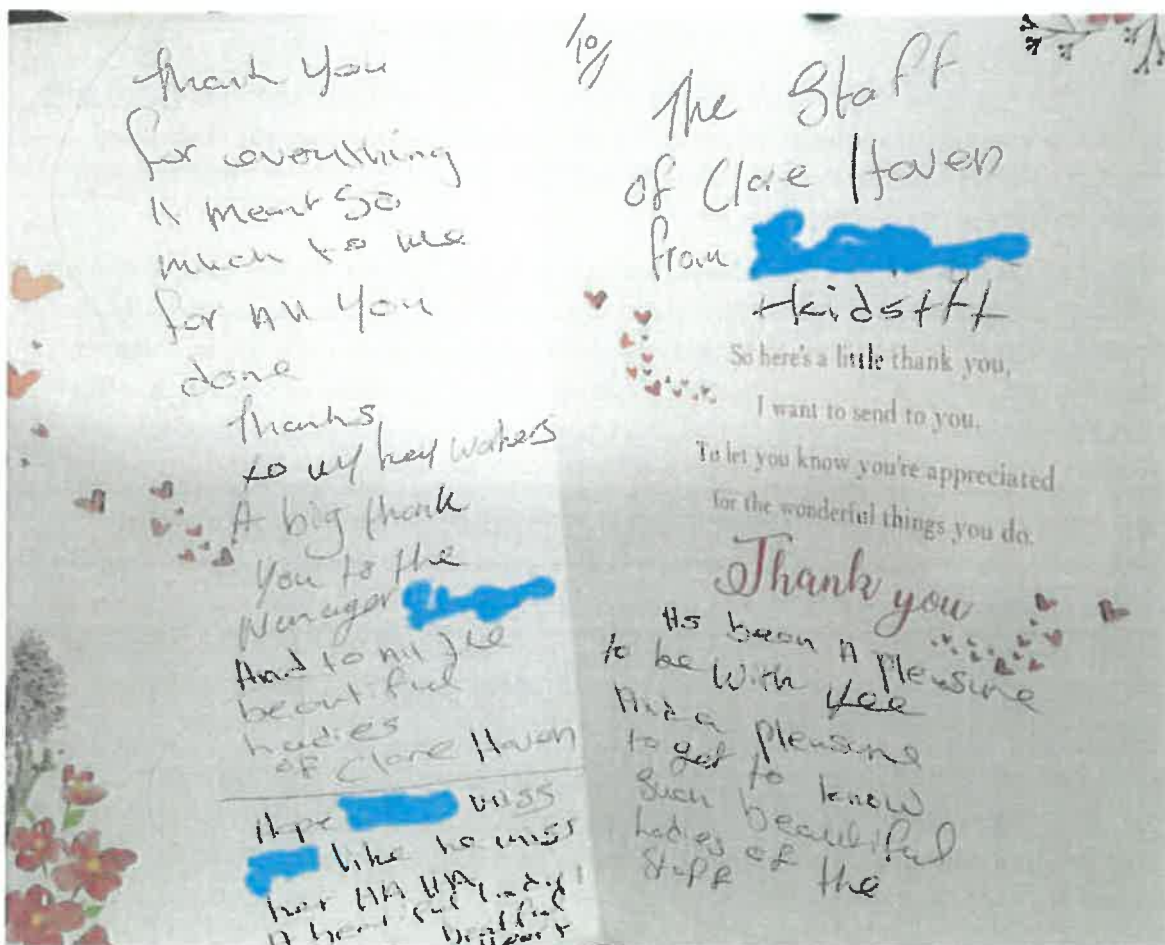 Thank You
for everything
It meant So
much to me
for All You
done
Thanks
to my key workers
A big thank
you to the
Manager
And to all the
beautiful
Ladies
of Clare Haven
Hope miss
like to miss
her
10/
The Staff
of Clare Haven
from
+kids+++
So here's a little thank you,
I want to send to you.
To let you know you're appreciated
for the wonderful things you do.
Thank you
Its been A pleasure
to be With yee
And a pleasure
to get to know
Such beautiful
Ladies of the
Staff
the